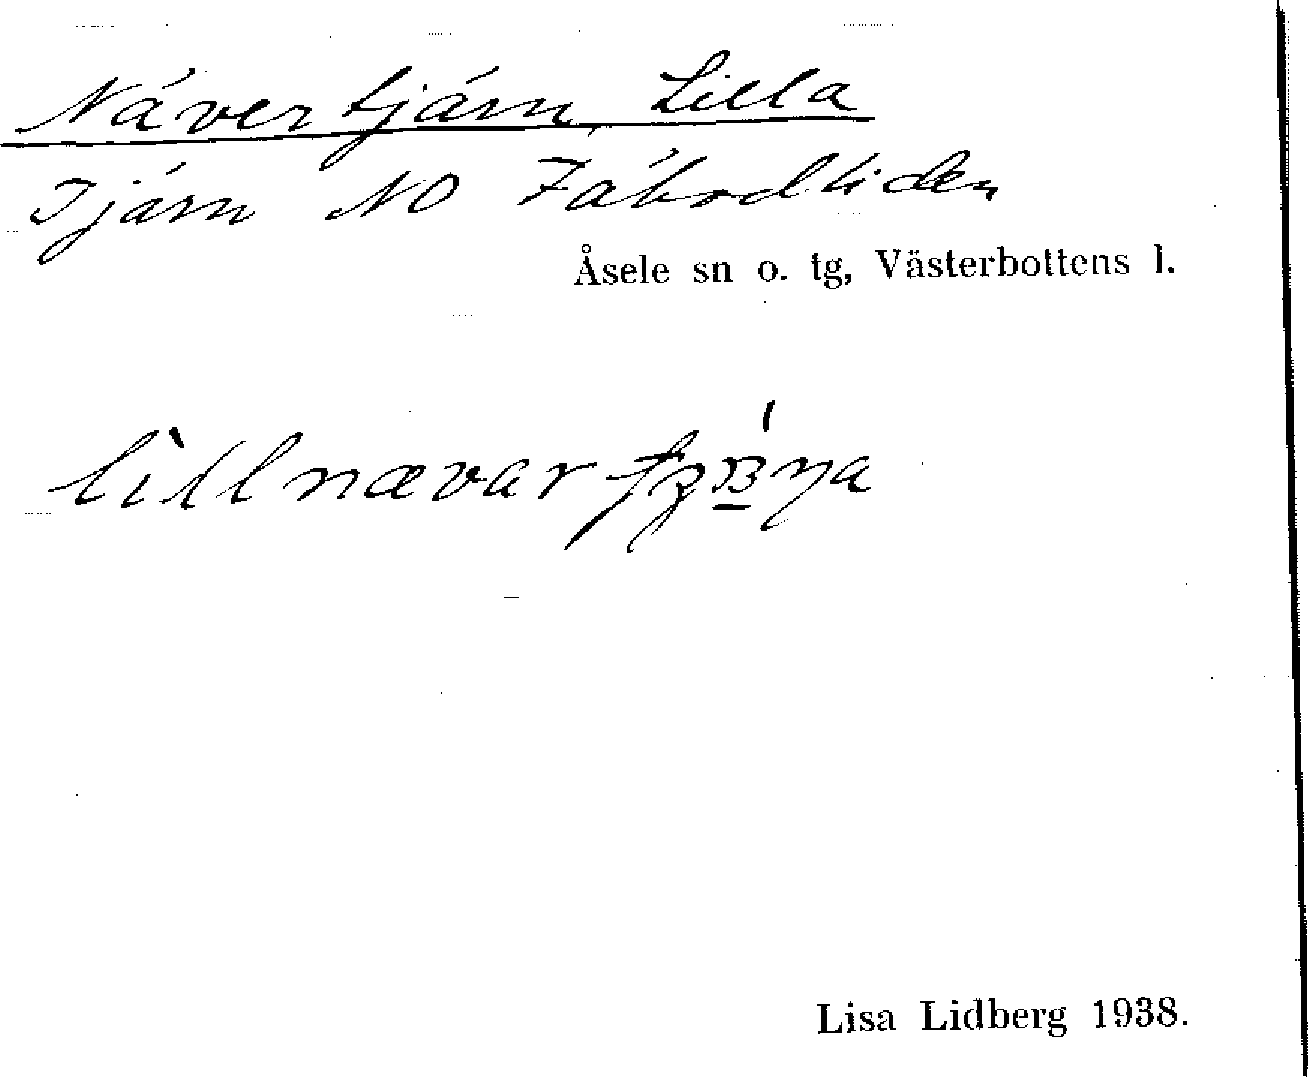 Nävertjärn, Lilla
Tjärn NO Fäbodliden
Åsele sn o. tg, Västerbottens l.
Lisa Lidberg 1938.